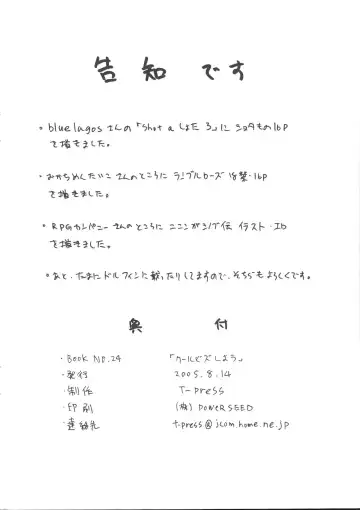 告知です
・bluelagosさんの「shot a しよた 3」に ショタもの16P
で描きました。
・おかちめんたいこさんのところに ランブルローズ 18禁・16P
で描きました。
・RPGカンパニーさんのところに ニニンがシノブ伝 イラスト・1P
で描きました。
・あと、たまにドルフィンに載ったりしてますので、そちらもよろしくです。
奥付
・Book No.24 「クールビズしよう」
・発行 2005.8.14
・制作 T-press
・印刷 (株) POWER SEED
・連絡先 t-press@jcom.home.ne.jp